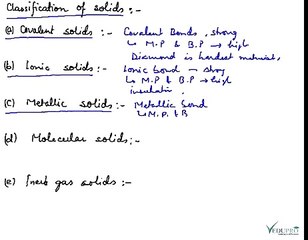 Classification of solids :-
(a) Covalent solids :- Covalent Bonds, strong
↳ M.P & B.P → high
Diamond is hardest material,
(b) Ionic solids :- Ionic bond — strong
↳ M.P & B.P → high
insulator,
(c) Metallic solids :- Metallic bond
↳ M.P. & B
(d) Molecular solids :-
(e) Inert gas solids :-